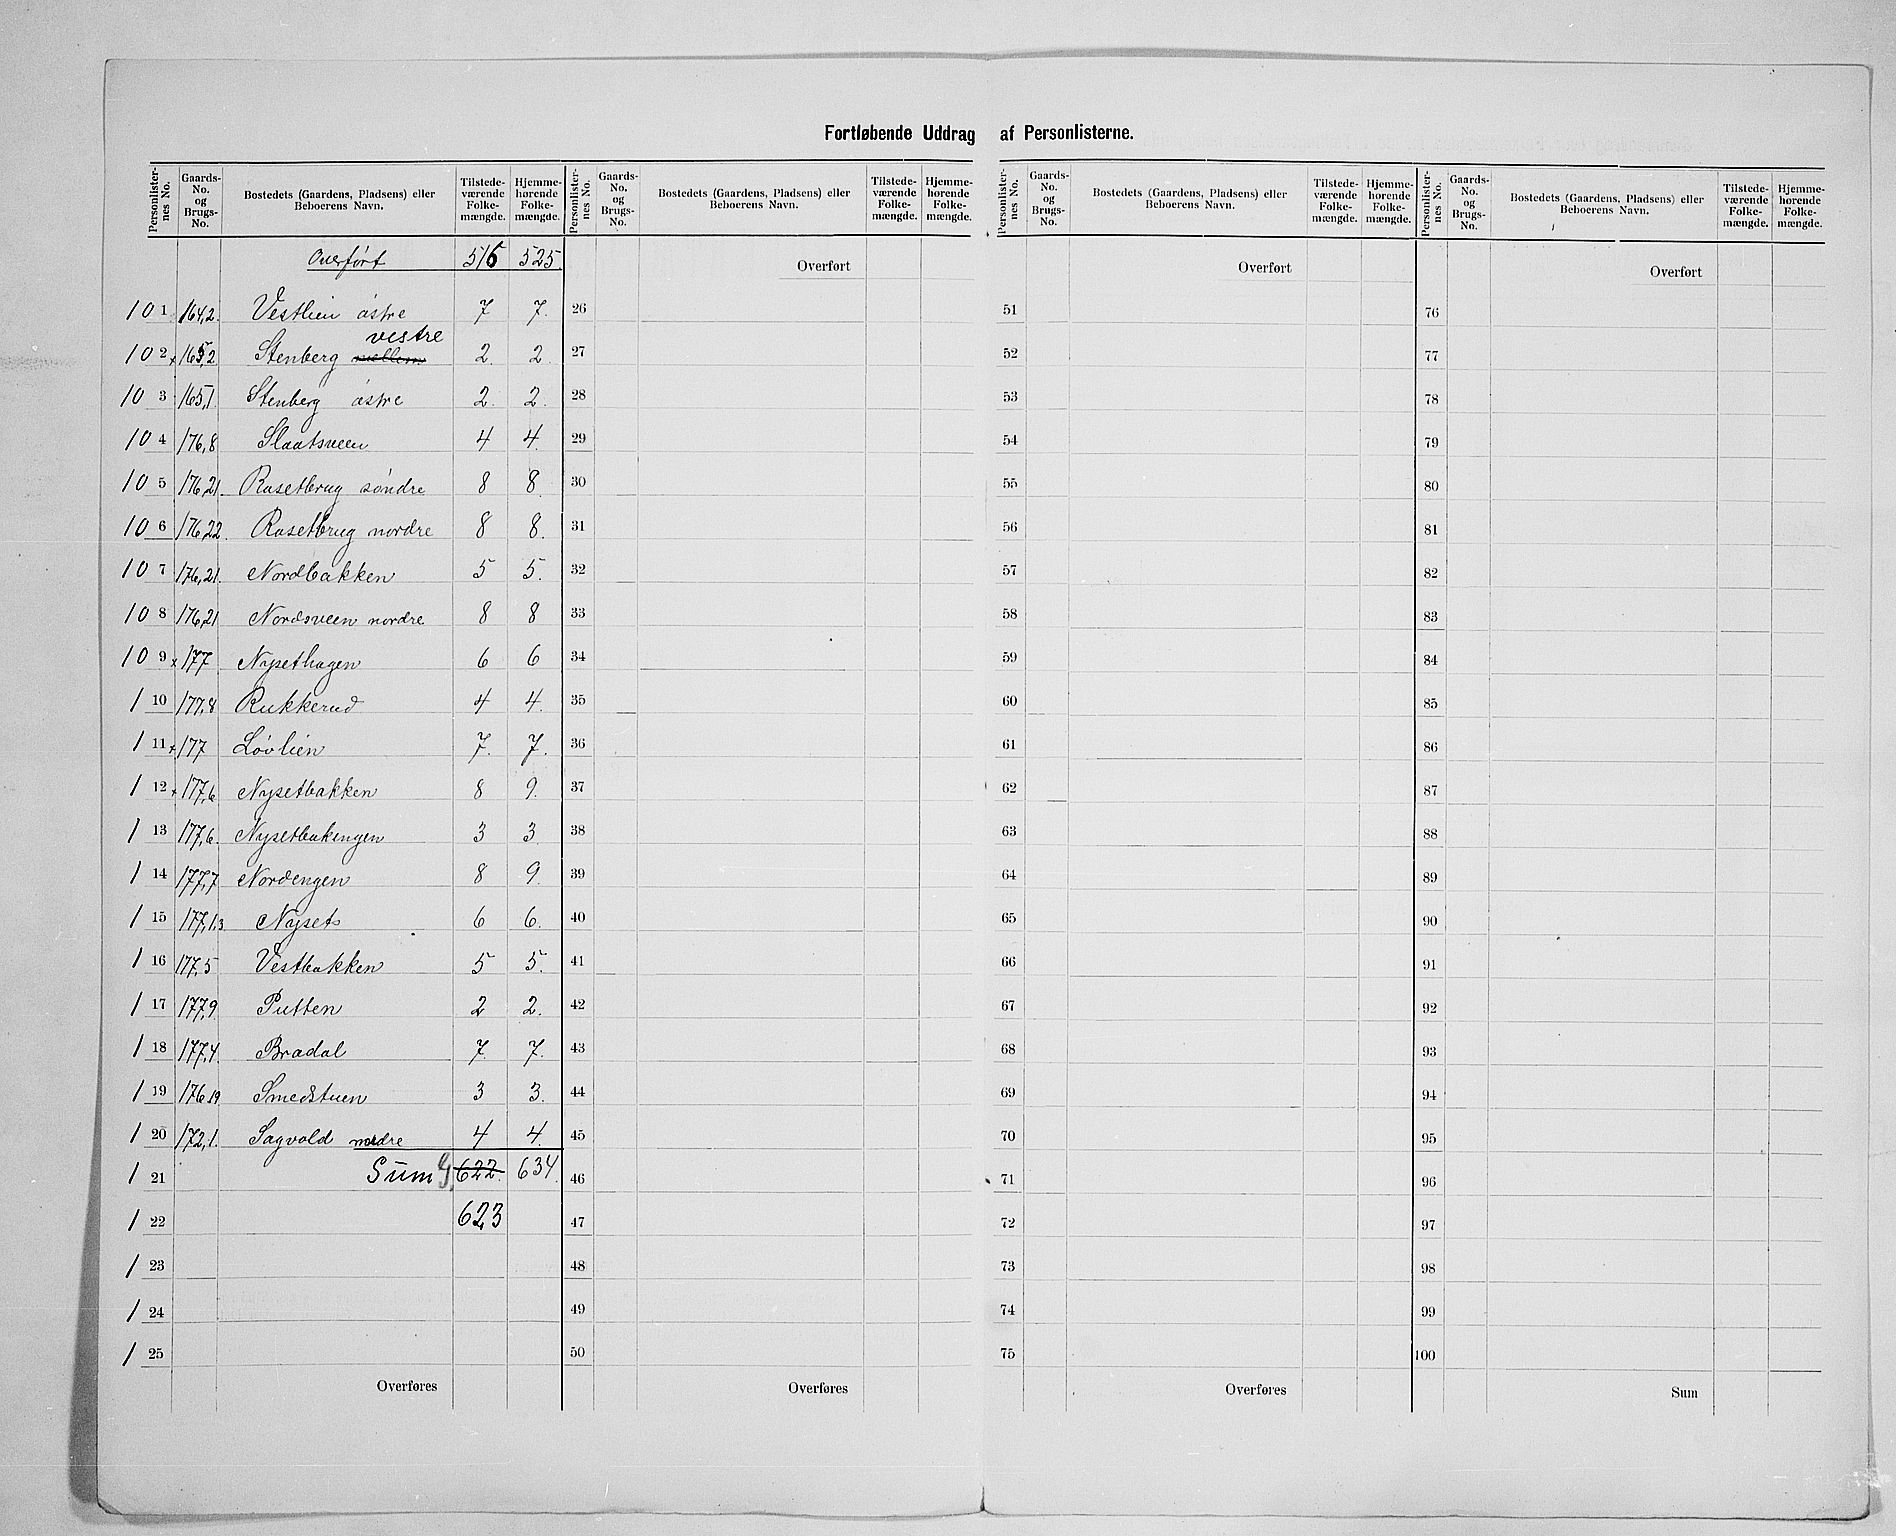 Fortløbende Uddrag af Personlisterne.
Personlister-nes No. Gaards-No. og Brugs-No. Bostedets (Gaardens, Pladsens) eller Beboerens Navn. Tilstede-værende Folke-mængde. Hjemme-hørende Folke-mængde.
Overført 516 525.
101 164,2. Vestlien østre 7 7.
vestre
102 x 165,2 Stenberg mellem 2. 2.
103 165,1. Stenberg østre 2. 2.
104 176,8 Slaatsveen 4 4.
105 176,21. Rosetbrug søndre 8 8.
106 176,22. Rosetbrug nordre 8 8.
107 176,21. Nordbakken 5 5.
108 176,21 Nordsveen nordre 8 8
109 x 177 Nysethagen 6 6
110 177,8 Rukkerud 4 4.
111 x 177 Løvlien 7. 7.
112 x 177,6 Nysetbakken 8 9.
113 177,6. Nysetbakengen 3 3.
114 177,7 Nordengen 8 9.
115 177,1.3 Nysets 6 6.
116 177,5 Vestbakken 5 5.
117 177,9. Putten 2 2.
118 177,4. Bradal 7. 7.
119 176,19. Smedstuen 3 3.
120 172,1. Sagvold nordre 4 4.
121 Sum 622. 634.
122 623
123
124
125
Overføres
Personlister-nes No. Gaards-No. og Brugs-No. Bostedets (Gaardens, Pladsens) eller Beboerens Navn. Tilstede-værende Folke-mængde. Hjemme-hørende Folke-mængde.
Overført
26
27
28
29
30
31
32
33
34
35
36
37
38
39
40
41
42
43
44
45
46
47
48
49
50
Overføres
Personlister-nes No. Gaards-No. og Brugs-No. Bostedets (Gaardens, Pladsens) eller Beboerens Navn. Tilstede-værende Folke-mængde. Hjemme-hørende Folke-mængde.
Overført
51
52
53
54
55
56
57
58
59
60
61
62
63
64
65
66
67
68
69
70
71
72
73
74
75
Overføres
Personlister-nes No. Gaards-No. og Brugs-No. Bostedets (Gaardens, Pladsens) eller Beboerens Navn. Tilstede-værende Folke-mængde. Hjemme-hørende Folke-mængde.
Overført
76
77
78
79
80
81
82
83
84
85
86
87
88
89
90
91
92
93
94
95
96
97
98
99
100
Sum